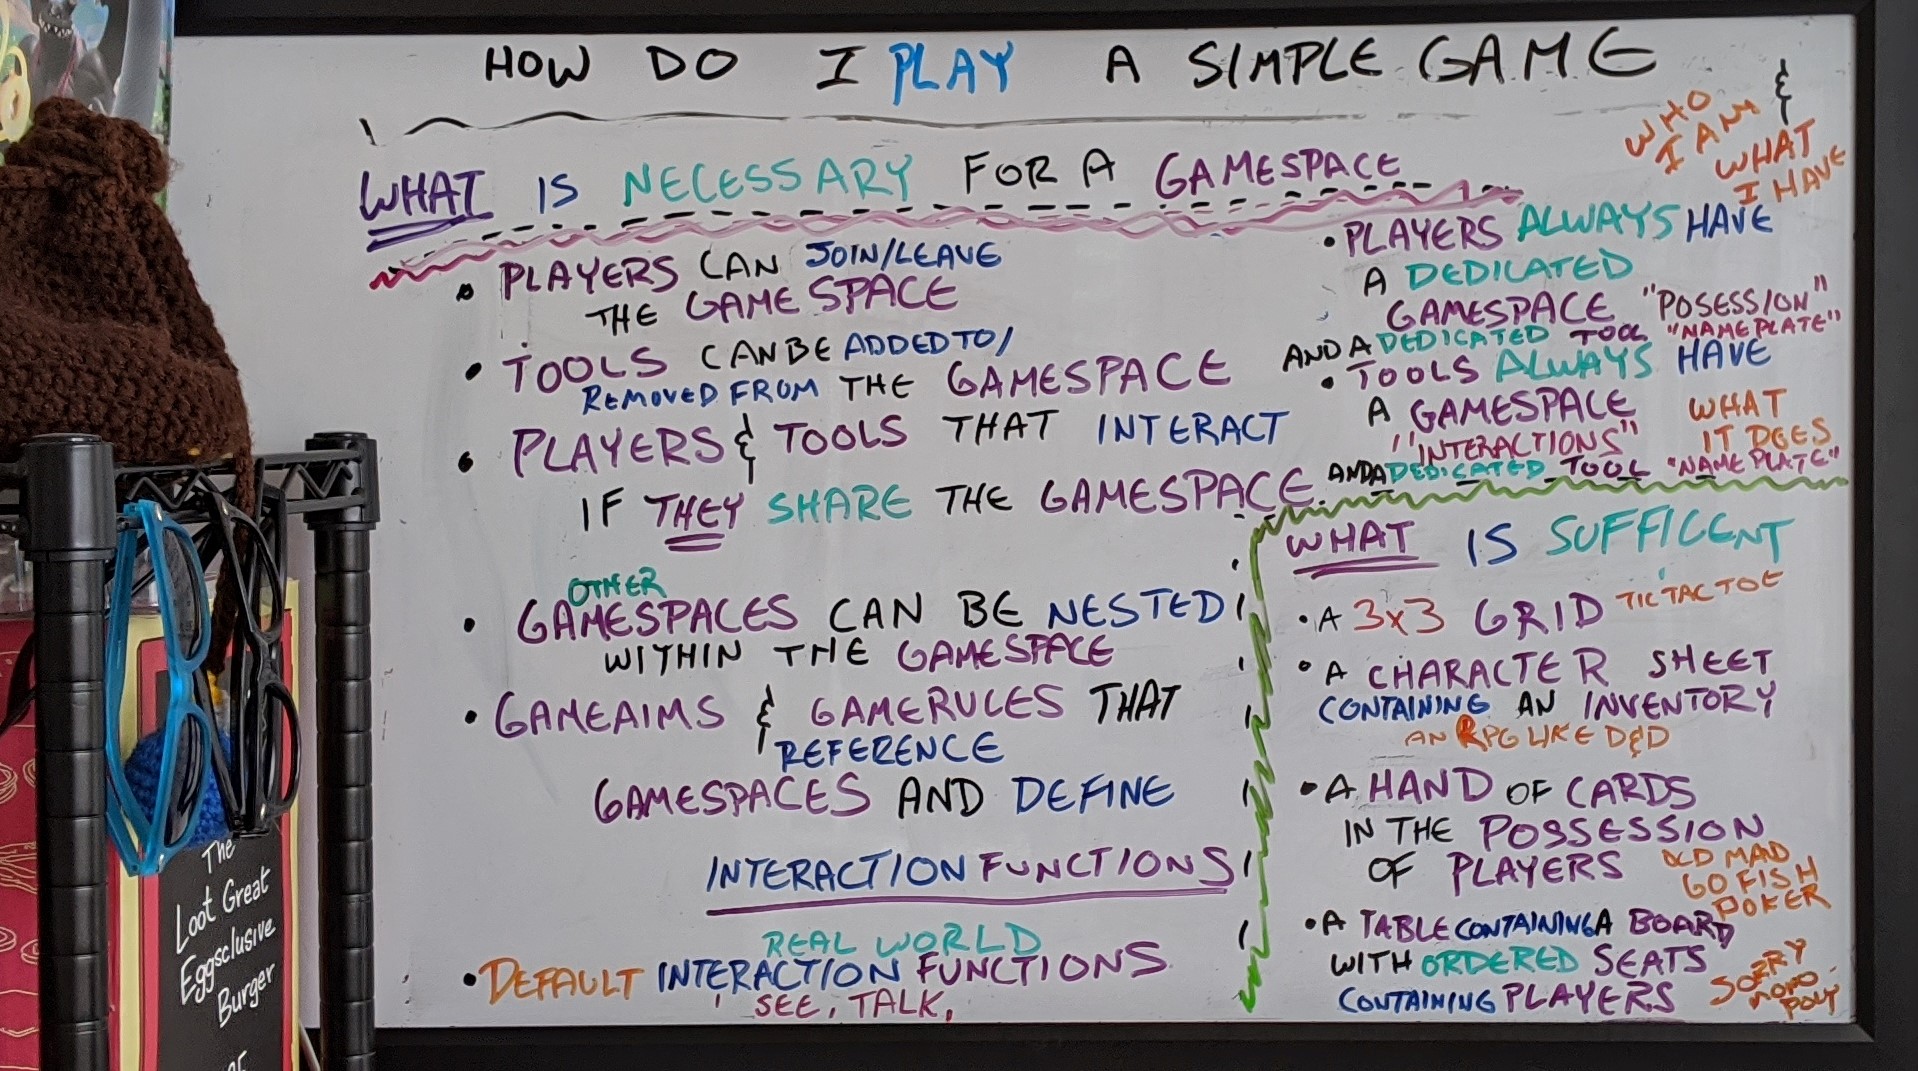 HOW DO I PLAY A SIMPLE GAME
WHAT IS NECESSARY FOR A GAMESPACE
• PLAYERS CAN JOIN/LEAVE
THE GAMESPACE
• TOOLS CAN BE ADDED TO/
REMOVED FROM THE GAMESPACE
• PLAYERS & TOOLS THAT INTERACT
IF THEY SHARE THE GAMESPACE.
OTHER
• GAMESPACES CAN BE NESTED
WITHIN THE GAMESPACE
• GAMEAIMS & GAMERULES THAT
REFERENCE
GAMESPACES AND DEFINE
INTERACTION FUNCTIONS
REAL WORLD
• DEFAULT INTERACTION FUNCTIONS
SEE, TALK,
&
WHO
I AM
WHAT
I HAVE
• PLAYERS ALWAYS HAVE
A DEDICATED
GAMESPACE "POSESSION"
AND A DEDICATED TOOL "NAMEPLATE"
• TOOLS ALWAYS HAVE
A GAMESPACE
"INTERACTIONS"
WHAT
IT DOES
AND A DEDICATED TOOL "NAMEPLATE"
WHAT IS SUFFICENT
• A 3x3 GRID TIC TAC TOE
• A CHARACTER SHEET
CONTAINING AN INVENTORY
AN RPG LIKE D&D
• A HAND OF CARDS
IN THE POSSESSION
OF PLAYERS
OLD MAD
GO FISH
POKER
• A TABLE CONTAINING A BOARD
WITH ORDERED SEATS
CONTAINING PLAYERS
SORRY
MONO
POLY
The
Loot Great
Eggsclusive
Burger